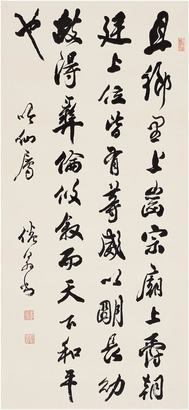 且鄉里上齒宗廟上爵朝
廷上位皆有等威以明長幼
故得彝倫攸敘而天下和平
也
吟仙屬